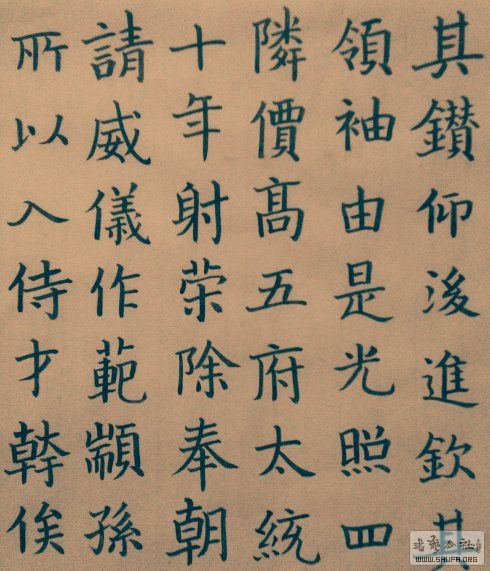 其鑚仰後進欽其
領袖由是光照四
隣價髙五府太統
十年射荣除奉朝
請威儀作範顓孫
所以入侍才幹俟
书艺公社
WWW.SHUFA.ORG